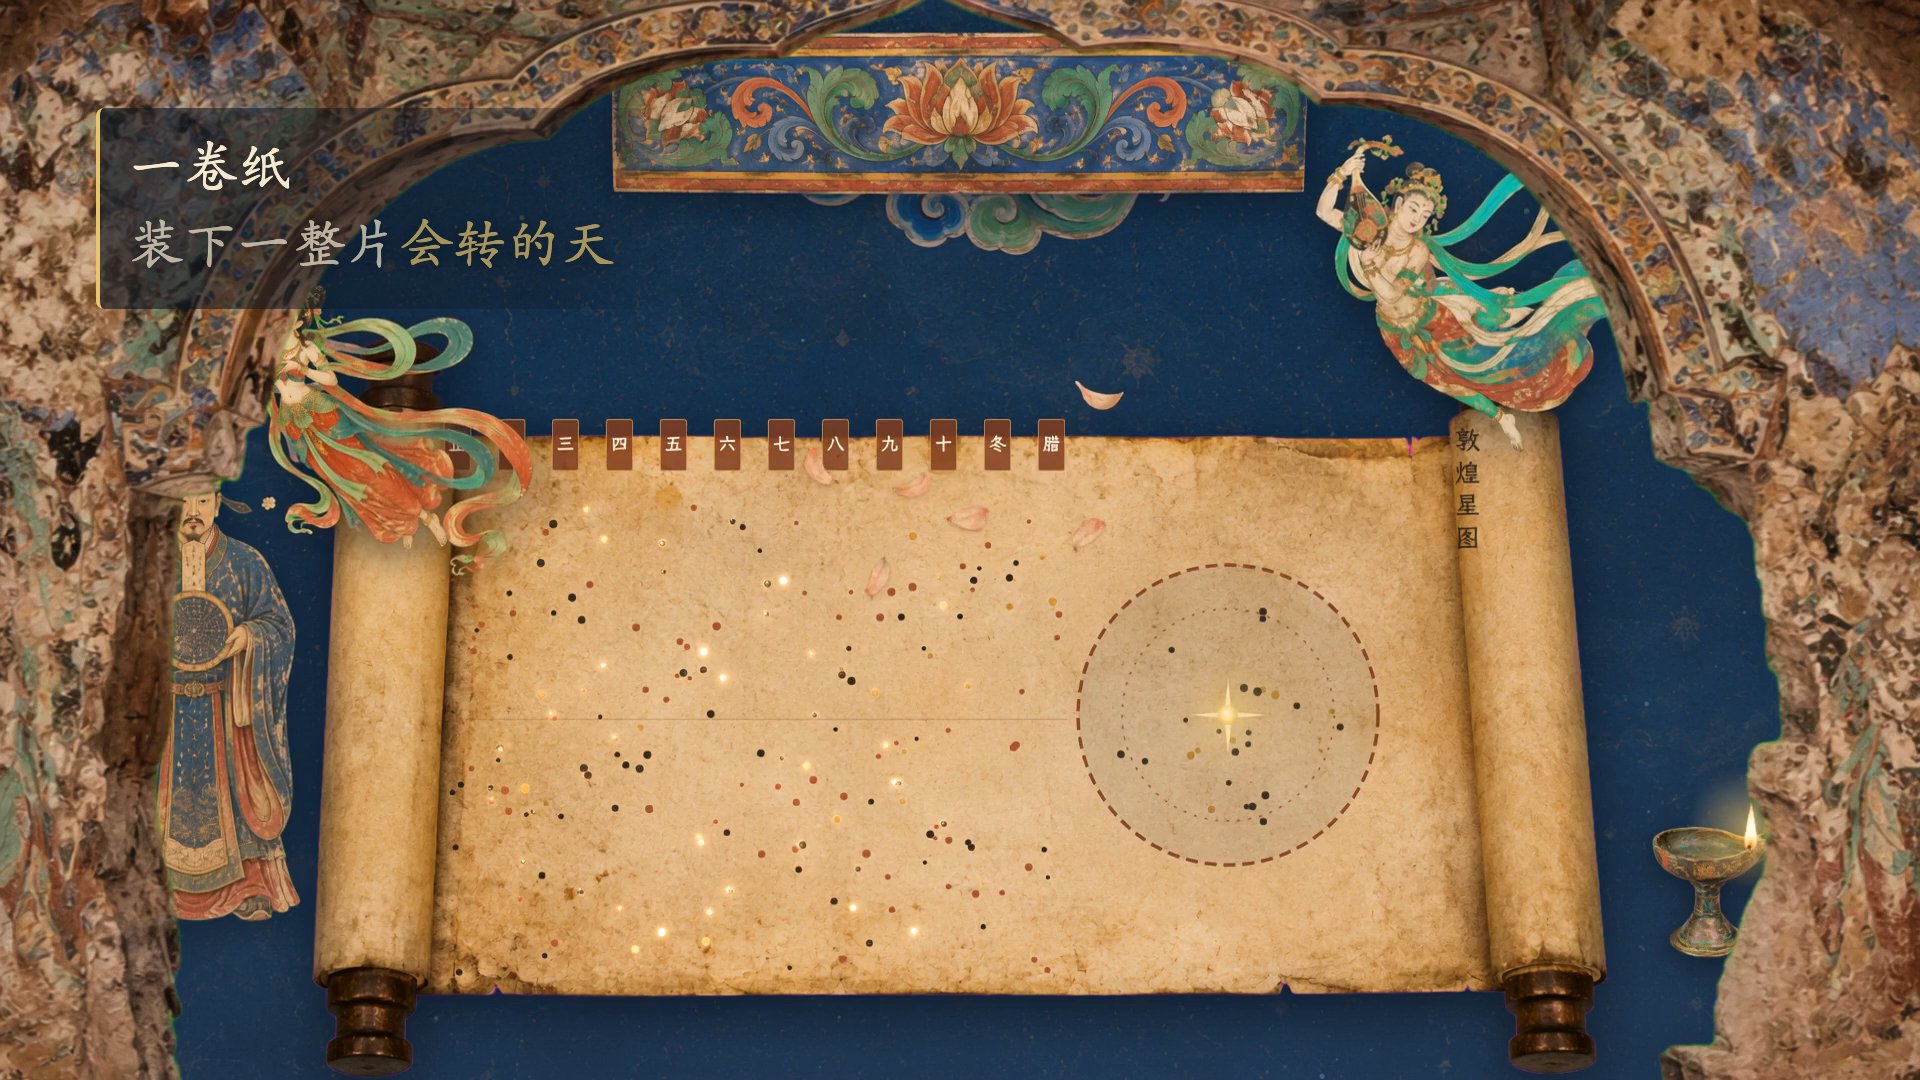 一卷纸
装下一整片会转的天
三 四 五 六 七 八 九 十 冬 腊
敦煌星图